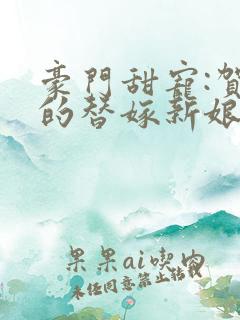 豪門甜寵:賀
的替嫁新娘
果果ai喫肉
未经同意禁止转载